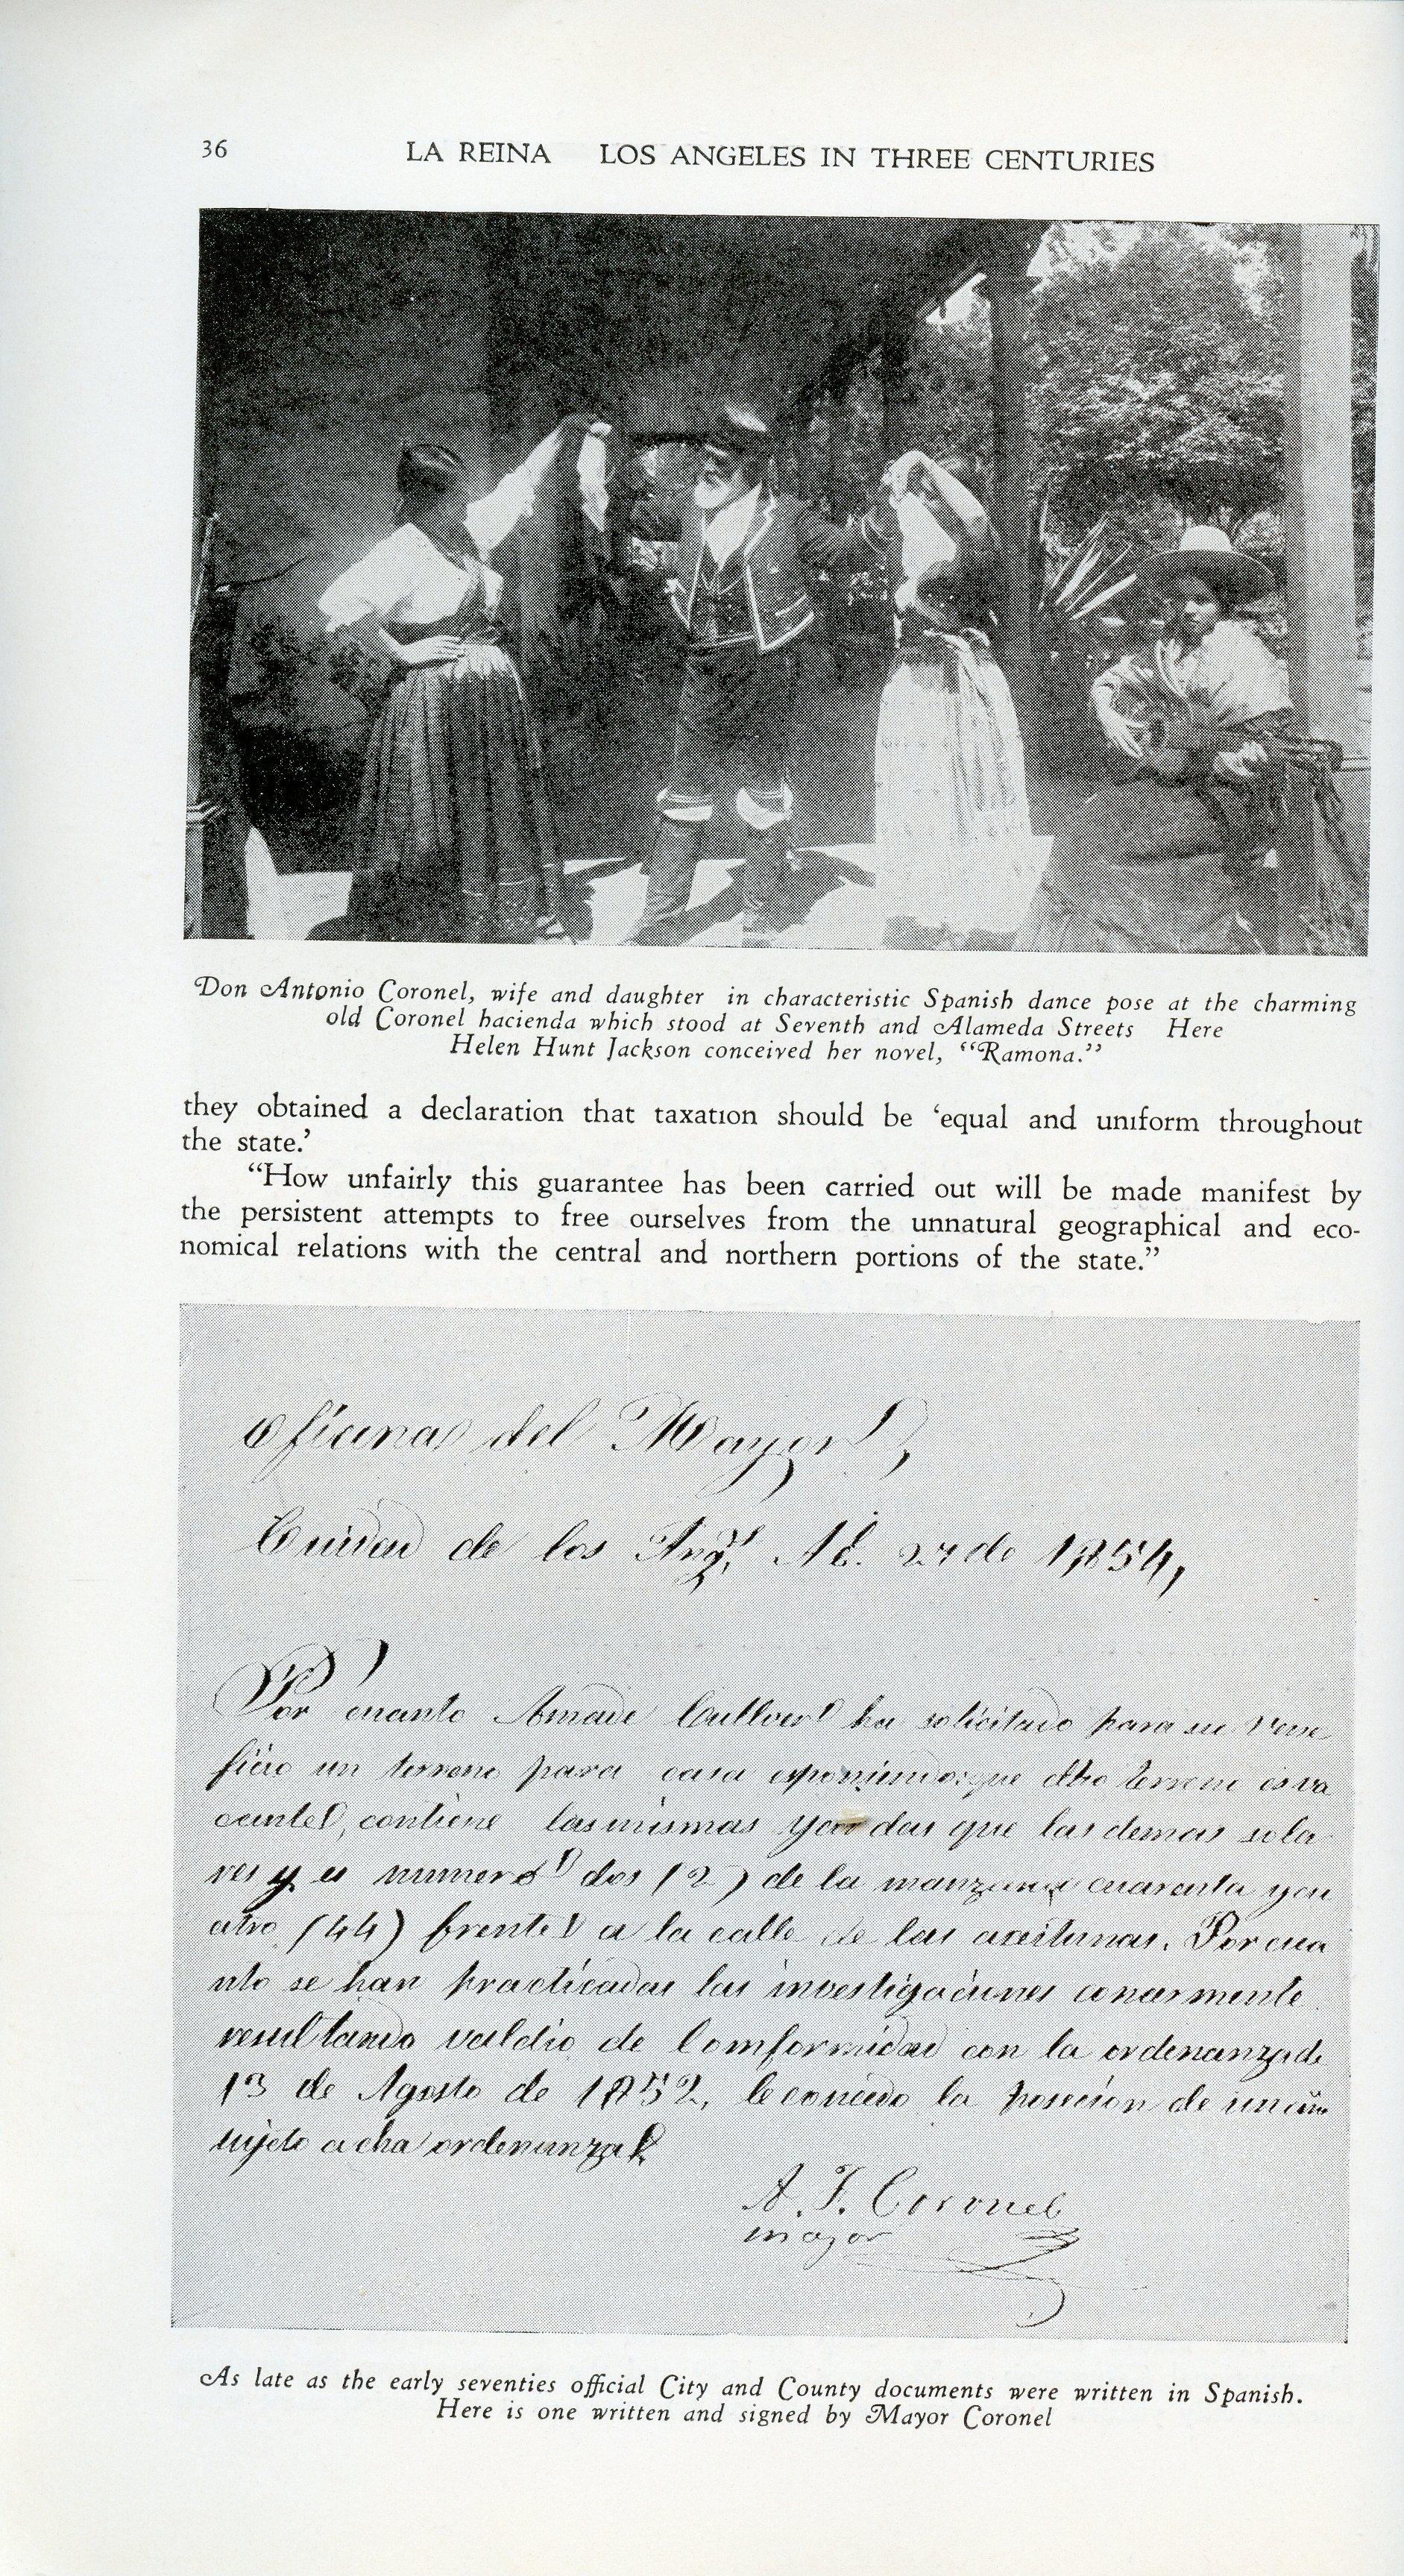 36
LA REINA LOS ANGELES IN THREE CENTURIES
Don Antonio Coronel, wife and daughter in characteristic Spanish dance pose at the charming
old Coronel hacienda which stood at Seventh and Alameda Streets Here
Helen Hunt Jackson conceived her novel, “Ramona.”
they obtained a declaration that taxation should be ‘equal and uniform throughout
the state.’
“How unfairly this guarantee has been carried out will be made manifest by
the persistent attempts to free ourselves from the unnatural geographical and eco-
nomical relations with the central and northern portions of the state.”
Oficinas del Mayor,
Cuidad de los Angs. 27 de 1854,
Por cuanto Amade ha solicitado para su vene
ficio un terreno para casa esponiendo: que dho terreno es va
cante, contiene las mismas yardas que las demas sola
res y es numero dos (2) de la manzana cuarenta y cu
atro (44) frente a la calle de las aceitunas. Por cua
nto se han practicadas las investigaciones
resultando valdio de comformidad con la ordenanza de
13 de Agosto de 1852, le concedo la posecion de un
sujeto a dha ordenanza
A. F. Coronel
mayor
As late as the early seventies official City and County documents were written in Spanish.
Here is one written and signed by Mayor Coronel